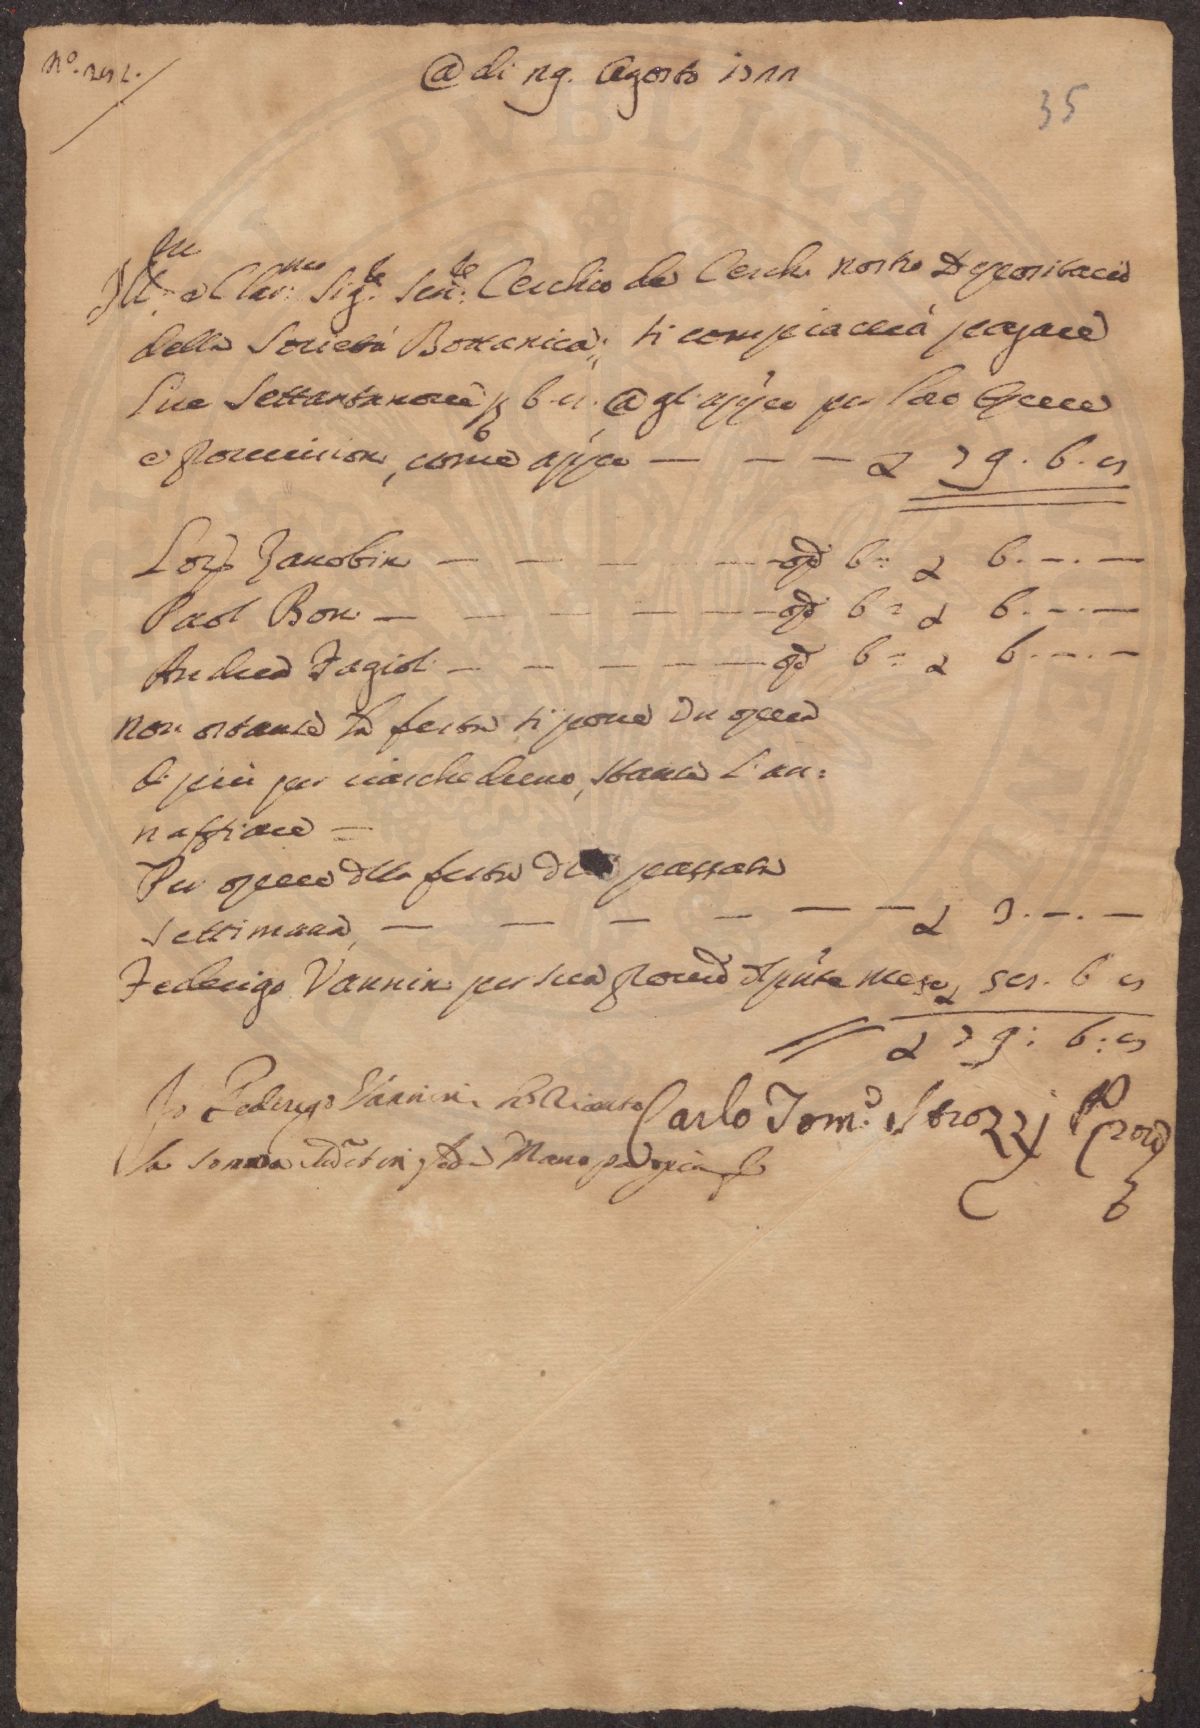 N.o
@ di 29. Agosto 1722
35
Ill.mo e Clar.mo Sig.re Sen.re Cerchio de Cerchi nostro Depositario
della Società Bottanica; si compiacerà pagare
lire Settantanove, 6. @ gl'app.o per loro Opere
e provvisione, come app.o — — — £ 79. 6.
Lor.o Zanobini — — — — op.e 6 = £ 6. —. —
Paol Boni — — — — — op.e 6 = £ 6. —. —
Andrea Fagioli — — — — — op.e 6 = £ 6. —. —
non ostante la festa si pone un opera
di più per ciascheduno, stante l'an=
naffiare =
Per opere della festa della passata
settimana, — — — — — — £ 3. —. —
Federigo Vannini per sua provv.e di p.nte mese £ 6
£ 79: 6:
Io Federigo Vannini ho riceuto
la somma sudetta Mano propria
Carlo Tom.o Strozzi Provv.e